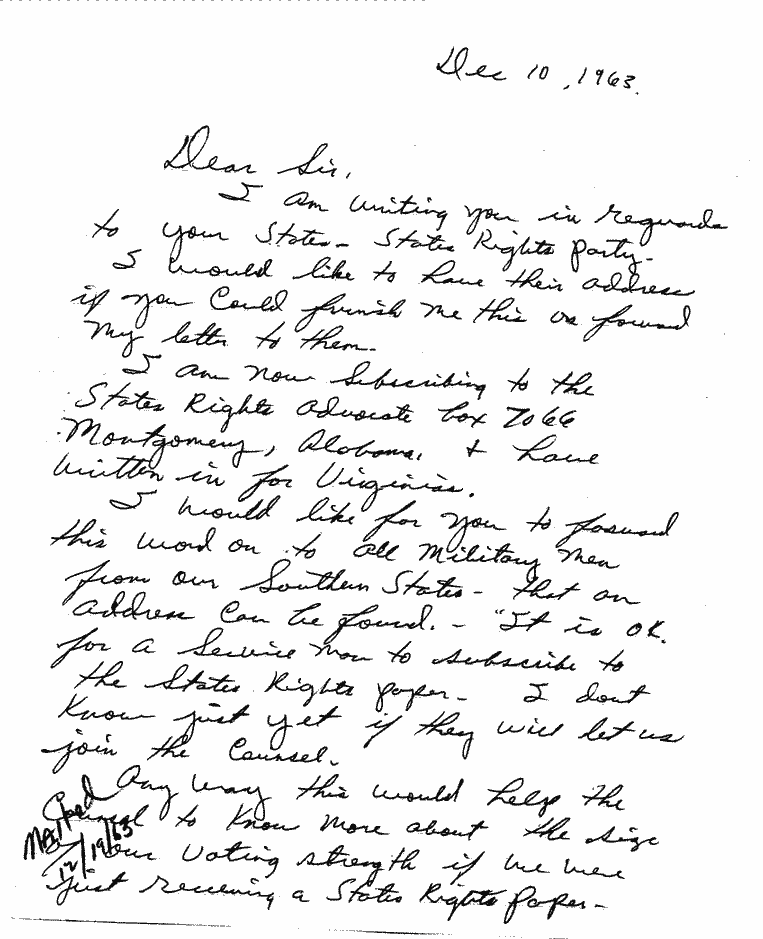 Dec 10, 1963.
Dear Sir,
I am writing you in reguards
to your States - States Rights Party.
I would like to have their address
if you could furnish me this or foward
my letter to them.
I am now Subscribing to the
States Rights Advocate box 7066
Montgomery, Alabama. + have
written in for Virginias.
I would like for you to foward
this word on to all Military Men
from our Southern States - that an
address can be found. - "It is OK.
for a Service Man to subscribe to
the States Rights paper - I dont
Know just yet if they will let us
join the Counsel.
Any way this would help the
Counsel to Know more about the size
our voting strength if we were
just receiving a States Rights paper -
Mailed
12/19/63